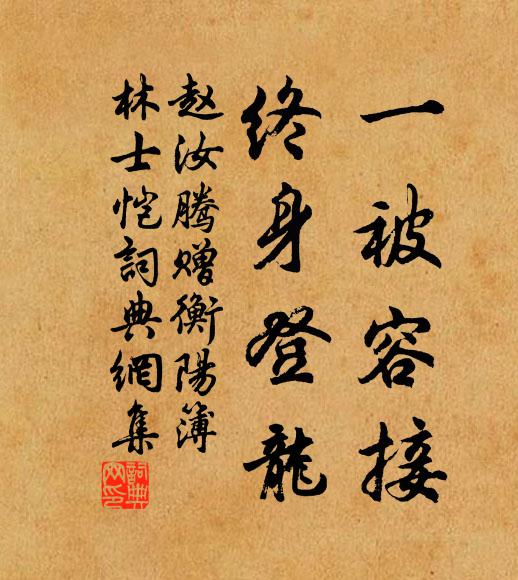 一被容接
终身登龍
赵汝腾赠衡陽簿
林士恺詞典網集
詞典网印